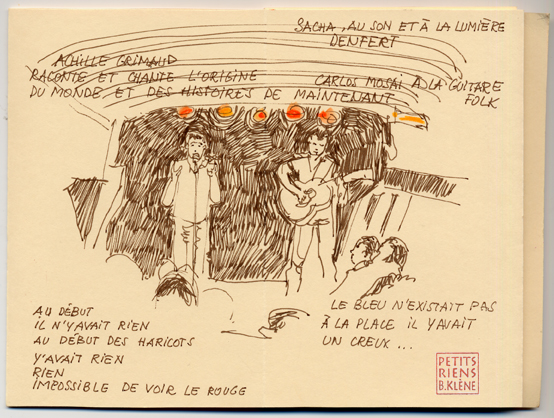 SACHA, AU SON ET À LA LUMIÈRE
DENFERT
ACHILLE GRIMAUD
RACONTE ET CHANTE L'ORIGINE
DU MONDE ET DES HISTOIRES DE MAINTENANT
CARLOS MOSAI À LA GUITARE
FOLK
AU DÉBUT
IL N'Y AVAIT RIEN
AU DÉBUT DES HARICOTS
Y'AVAIT RIEN
RIEN
IMPOSSIBLE DE VOIR LE ROUGE
LE BLEU N'EXISTAIT PAS
À LA PLACE IL Y AVAIT
UN CREUX ...
PETITS
RIENS
B.KLÈNE